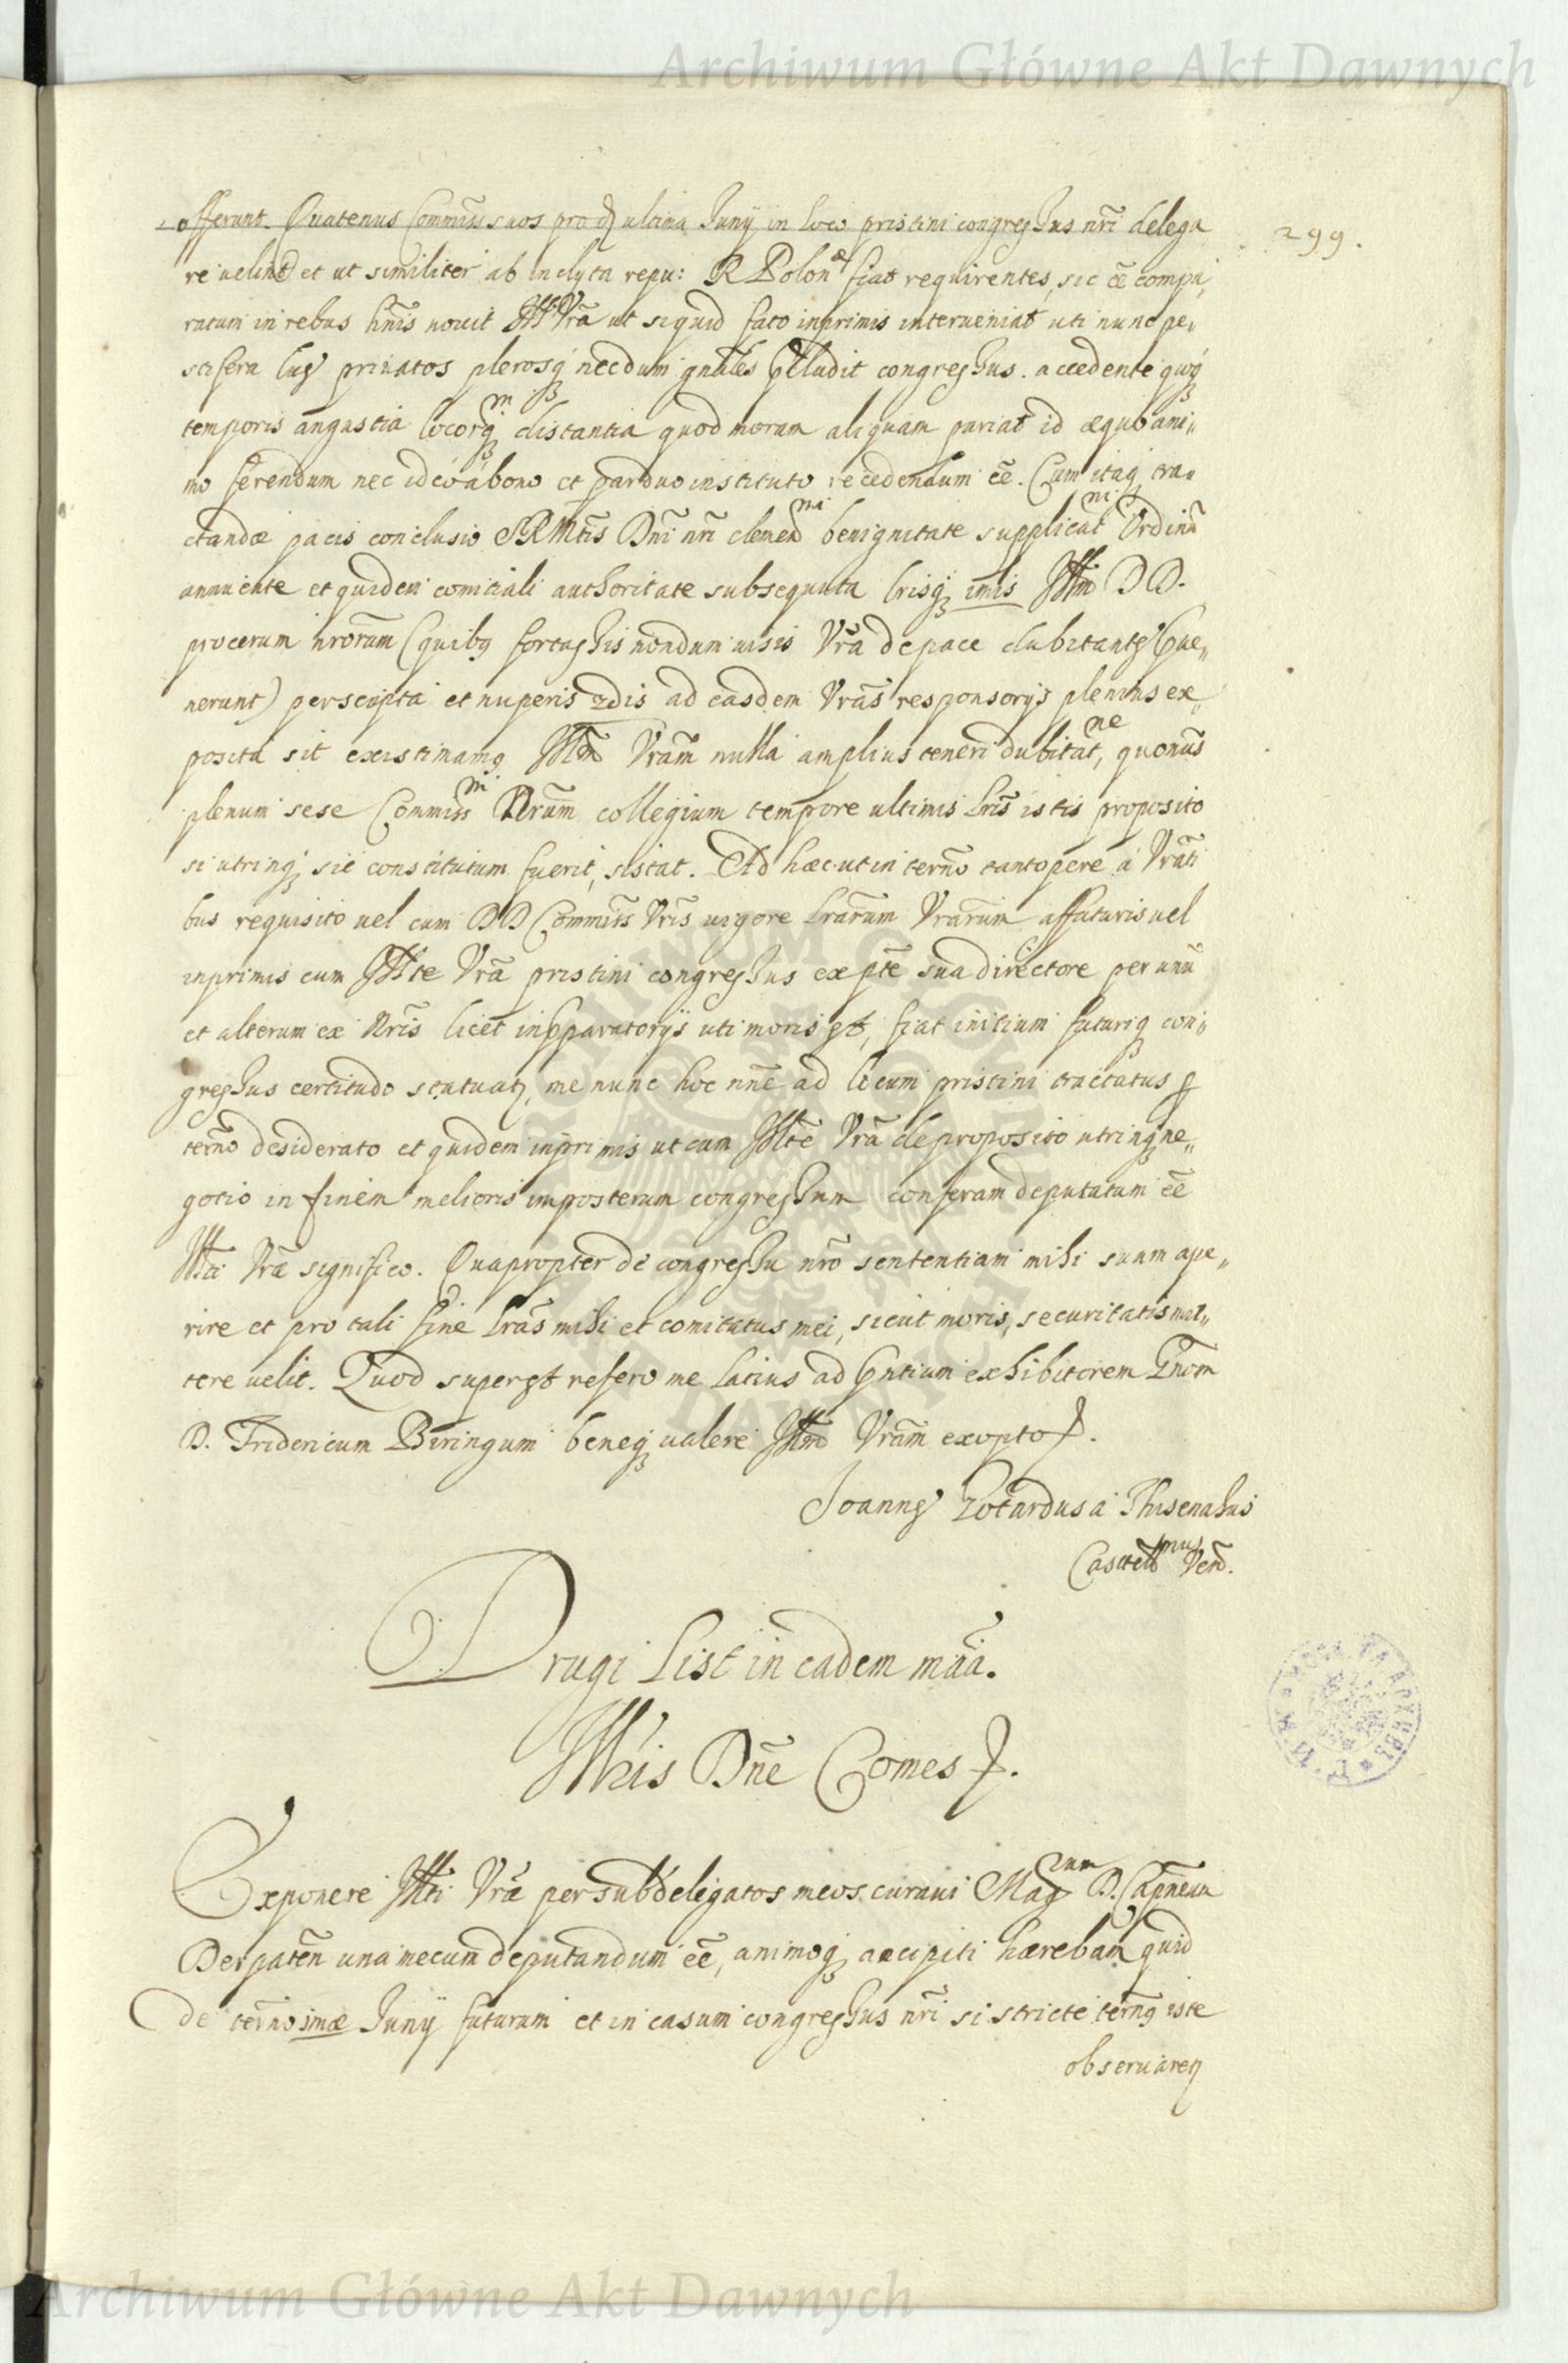 Archiwum Główne Akt Dawnych
299.
offerunt. Quatenus Commiss suos pro die ultima Junÿ in loco pristini congressus nrĩ delega
re uelint et ut similiter ab inclyta repu: R Polonae fiat requirentes, sic eẽ compa,
ratum in rebus hnĩs nouit Ill Vrã ut si quid fato inprimis interueniat uti nunc pe,
stifera lues priuatos plerosq necdum gnãles pcludit congressus. accedente quoq
temporis angustia locorq distantia quod moram aliquam pariat id æquo ani,,
mo ferendum nec ideo á bono et p arduo instituto recedendum eẽ. Cum itaq tra,,
ctandæ pacis conclusio SRMtĩs Dnĩ nrĩ clemenmi benignitate supplicatni Ordinũ
annuente et quidem comitiali authoritate subsequuta lrisq imis Illm DD.
procerum nrorũm (quibq fortassis nondum uisis Vrã de pace dubitantes
nerunt) perscripta et nuperis ad easdem Vrãs responsorijs plenius ex,,
posita sit existimamq Illm Vrãm nulla amplius teneri dubitatne, quonũs
plenum sese Commissm Nrũm collegium tempore ultimis lrĩs istis proposito
si utrinq sic constitutum fuerit, sistat. Ad hæc ut in termõ tantopere á Vrãti
bus requisito uel cum DD Commiss Vrĩs uigore lrarũm Vrarũm affuturis uel
inprimis cum Illte Vrã pristini congressus ex ptẽ sua directore per unũ
et alterum ex Nrĩs licet in pparatorijs uti moris est, fiat initium futuriq con,,
gressus certitudo statuatr, me nunc hoc nnẽ ad locum pristini tractatus p
termõ desiderato et quidem inprimis ut cum Illte Vrã de proposito utrinq ne,,
gotio in finem melioris imposterum congressum conferam deputatum eẽ
Illti Vræ significo. Quapropter de congressu nrõ sententiam mihi suam ape,,
rire et pro tali fine lrãs mihi et comitatus mei, sicut moris, securitatis mit,,
tere uelit. Quod superest refero me latius ad pntium exhibitorem Gnom
D. Fridericum Biringum beneq ualere Illm Vrãm exopto.
Joannes Zotardus á Thisenahus
Castellnus Ven.
Drugi List in eadem mãã.
Illris Dnẽ Comes
Exponere Illti Vræ per subdeligatos meos curaui Mag D. Capneum
Derpatẽn una mecum deputandum eẽ, animoq ancipiti hærebam quid
de termõ imæ Junÿ futurum et in casum congressus nrĩ si stricte termq iste
obseruaretr
Archiwum Główne Akt Dawnych